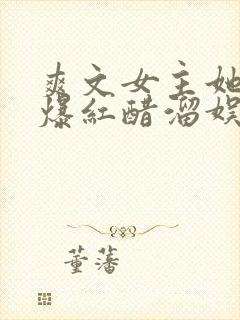 爽文女主她
爆红醋溜娱
董藩